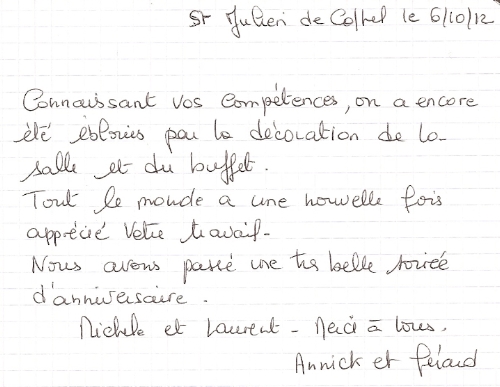 St Julien de Coppel le 6/10/12
Connaissant vos compétences, on a encore
été éblouies par la décoration de la
salle et du buffet.
Tout le monde a une nouvelle fois
apprécié votre travail-
Nous avons passé une très belle soirée
d'anniversaire.
Michele et Laurent - Merci à tous.
Annick et Gérard